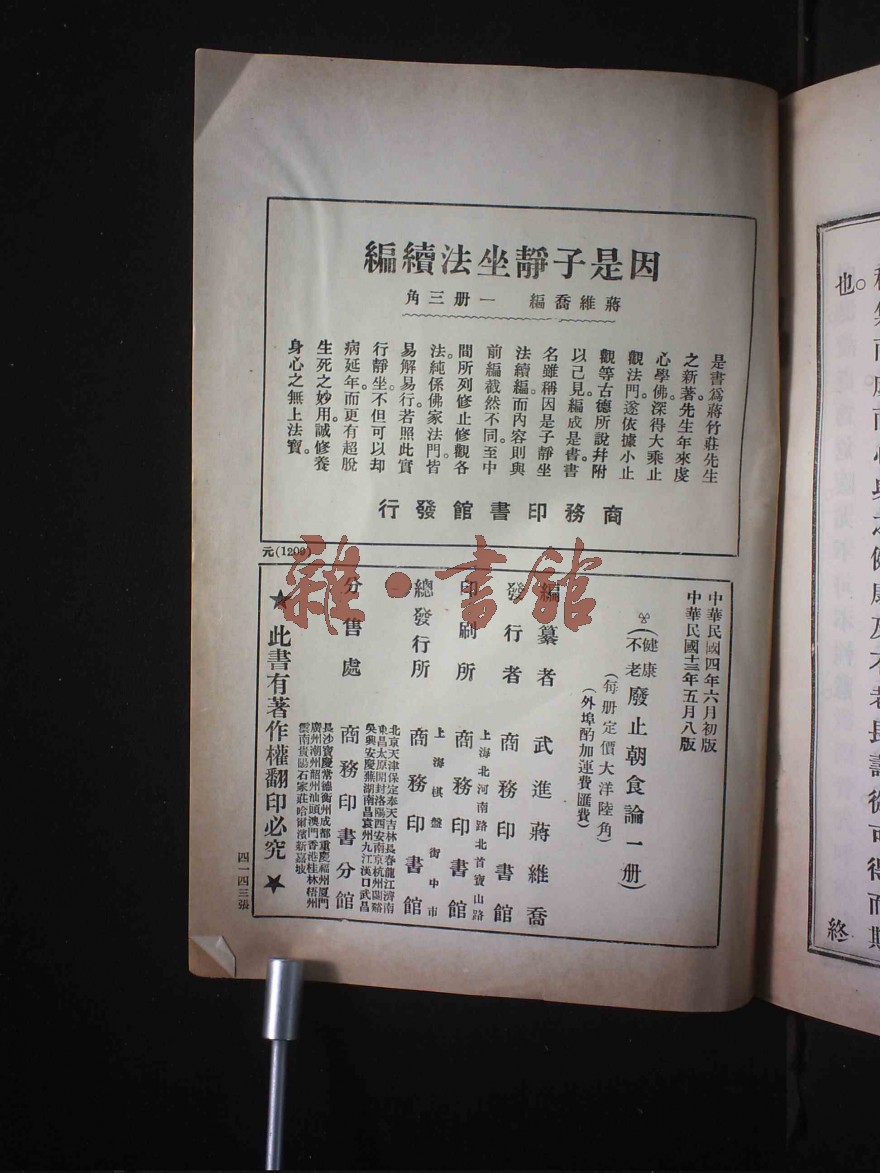 因是子靜坐法續編
蔣維喬編 一册三角
是書爲蔣竹莊先生
之新著。先生年來虔
心學佛。深得大乘止
觀法門。遂依據小止
觀等古德所說。幷附
以己見。編成是書。書
名雖稱因是子靜坐
法續編。而内容則與
前編截然不同。至中
間所列修止修觀各
法。純係佛家法門。皆
易解易行。若照此實
行靜坐。不但可以却
病延年。而更有超脫
生死之妙用。誠修養
身心之無上法寶。
商務印書館發行
元(1209)
中華民國四年六月初版
中華民國十三年五月八版
(健康不老廢止朝食論一册)
(每册定價大洋陸角)
(外埠酌加運費匯費)
編纂者 武進蔣維喬
發行者 商務印書館
上海北河南路北首寶山路
印刷所 商務印書館
上海棋盤街中市
總發行所 商務印書館
北京天津保定奉天吉林長春龍江濟南
東昌太原開封洛陽西安南京杭州蘭谿
吳興安慶蕪湖南昌袁州九江漢口武昌
分售處 商務印書分館
長沙寶慶常德衡州成都重慶福州厦門
廣州潮州韶州汕頭澳門香港桂林梧州
雲南貴陽石家莊哈爾濱新嘉坡
★此書有著作權翻印必究★
四一四三張
雜·書館
也。
終